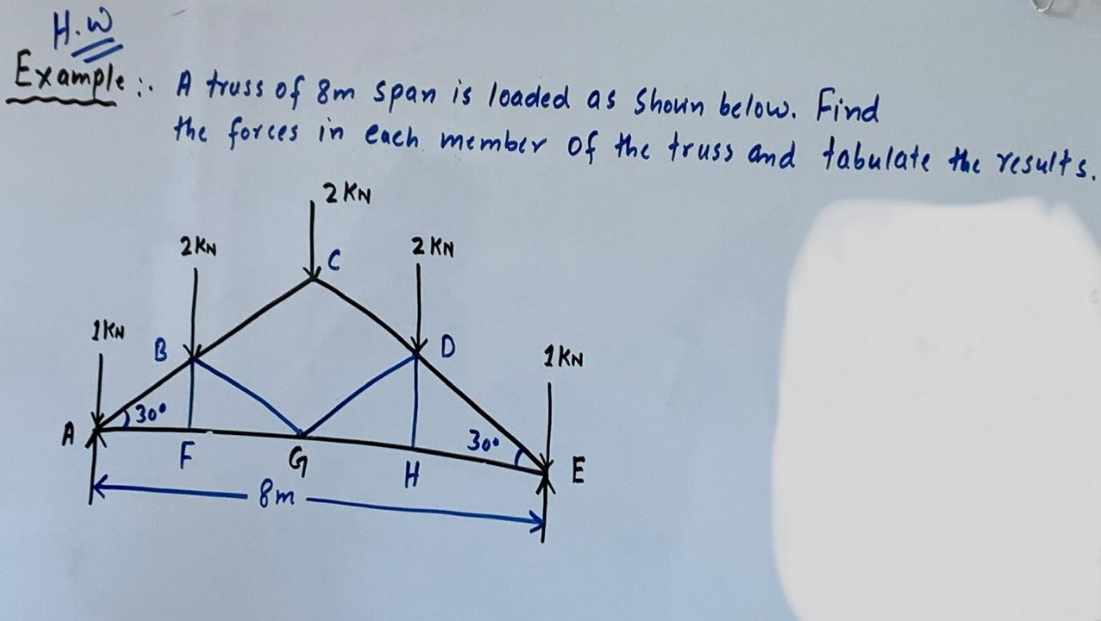 H.W
Example:. A truss of 8m span is loaded as shown below. Find
the forces in each member of the truss and tabulate the results.
2 KN
2KN
2 KN
C
1KN
B
D
1KN
30°
A
30°
F
G
H
E
8m